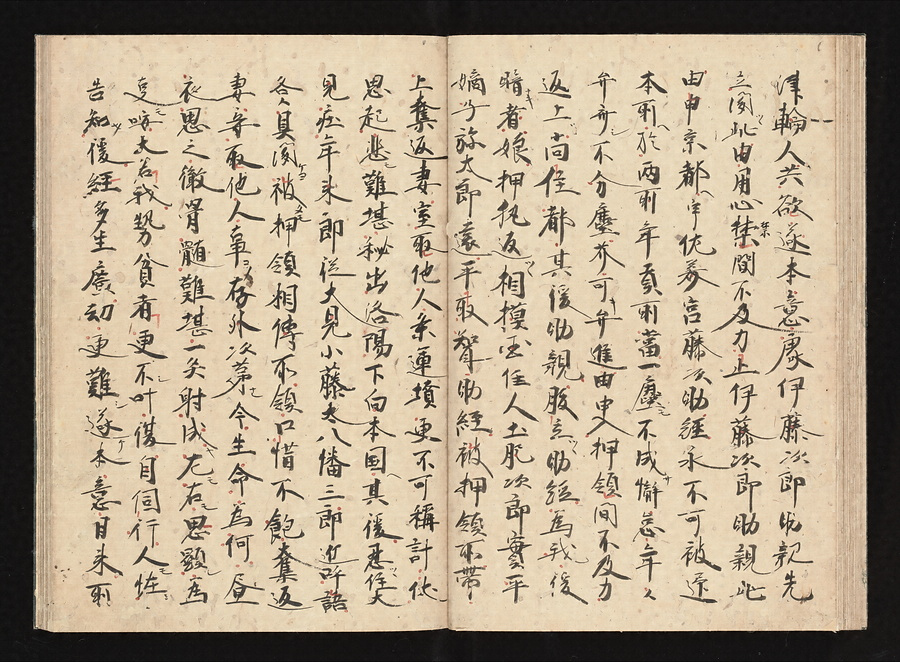 津輪人共欲遂本意処伊藤次郎助親先
立聞此由用心禁間不及力止伊藤次郎助親此
由申京都宇佐美宮藤次助経永不可被還
本所於両所年貢所當一塵不成懈怠年々
弁斉不分塵芥可弁進由申押領間不及力
返上尚住都其後助親腹立助経為我後
暗者娘押執返相摸国住人土肥次郎実平
嫡子弥太郎遠平取聟助経被押領所帯
上奪返妻室取他人条運墳更不可稱計依
思起悲難堪秘出洛陽下向本国其後悪住大
見庄年来郎従大見小藤太八幡三郎近吁語
各々具聞被押領相傳所領口惜不飽奪返
妻女取他人事存外次第今生命為何昼
夜思之徹骨髄難堪一矢射成左右思顕為
更 大名我勢貧者更不叶僕自伺行人怪
告知後経多生廣劫更難遂本意日来所